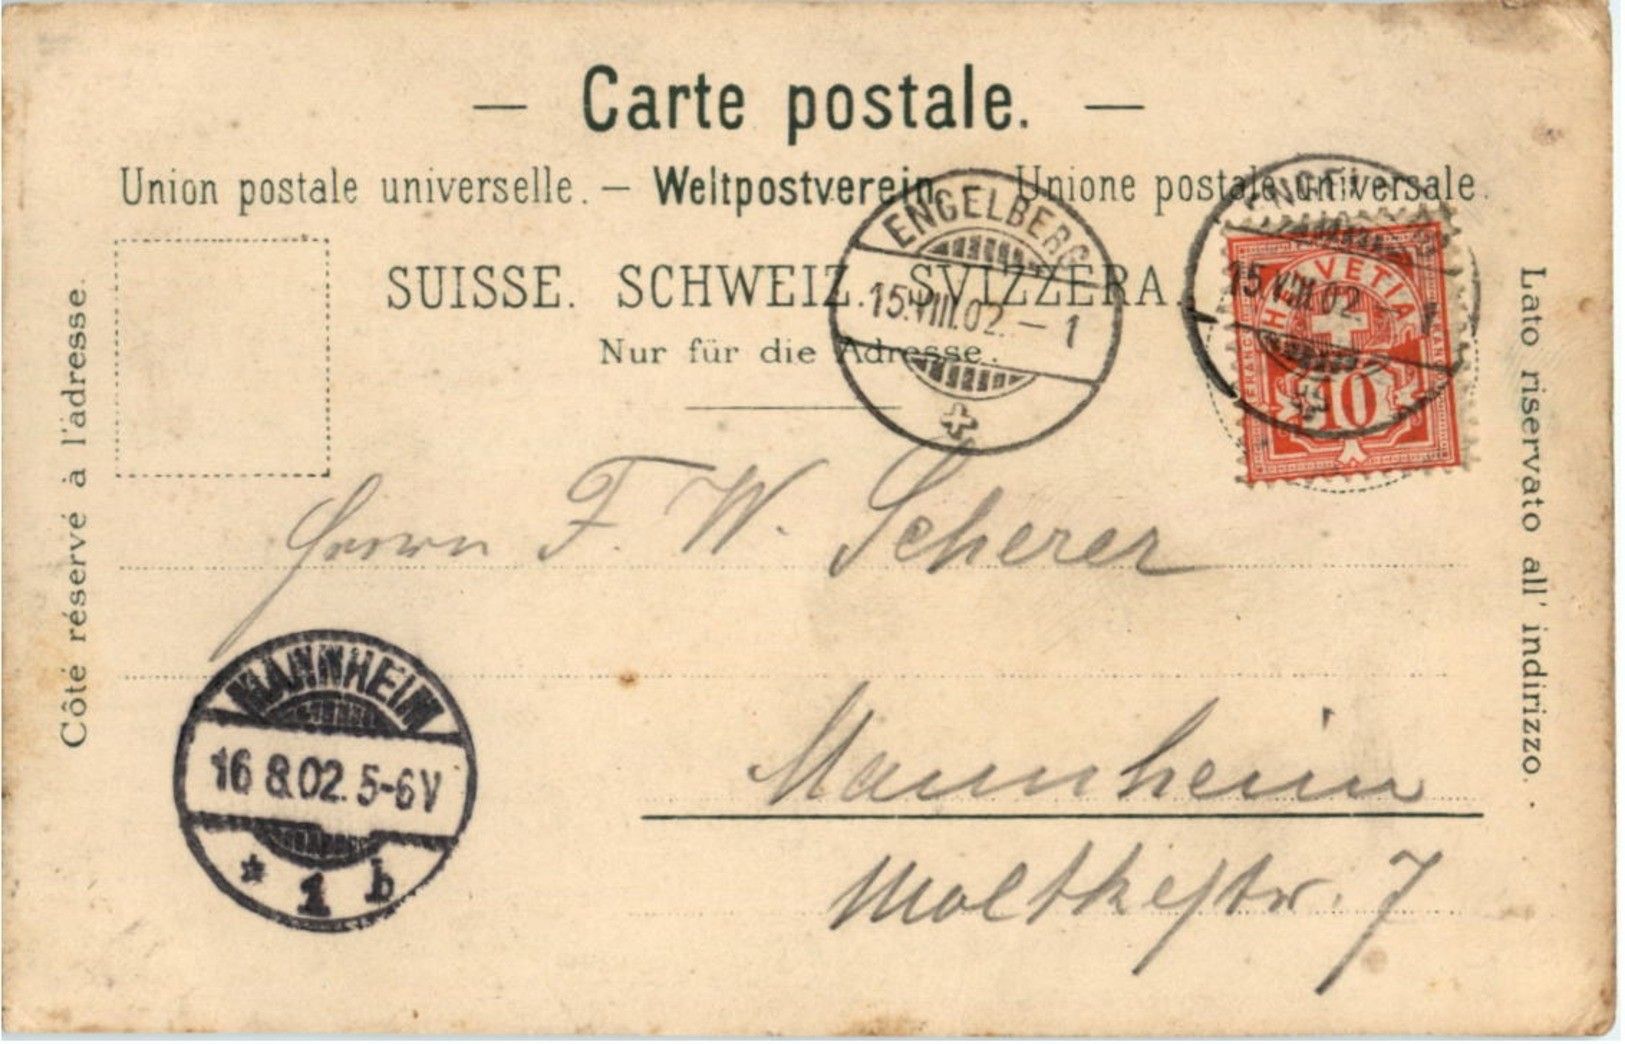 — Carte postale. —
Union postale universelle. — Weltpostverein. — Unione postale universale.
SUISSE. SCHWEIZ. SVIZZERA.
Nur für die Adresse.
Côté réservé à l'adresse.
Lato riservato all' indirizzo.
ENGELBERG
15.VIII.02.–1
ENGELBERG
15.VIII.02.–1
HELVETIA
FRANCO
FRANCO
10
Herrn F. W. Scherer
Mannheim
Moltkestr. 7
MANNHEIM
16 8.02. 5-6V
* 1 b